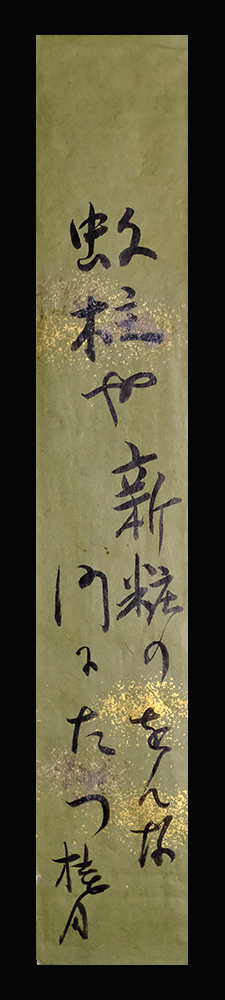 蚊柱や新粧のをんな
門にたつ
桂月